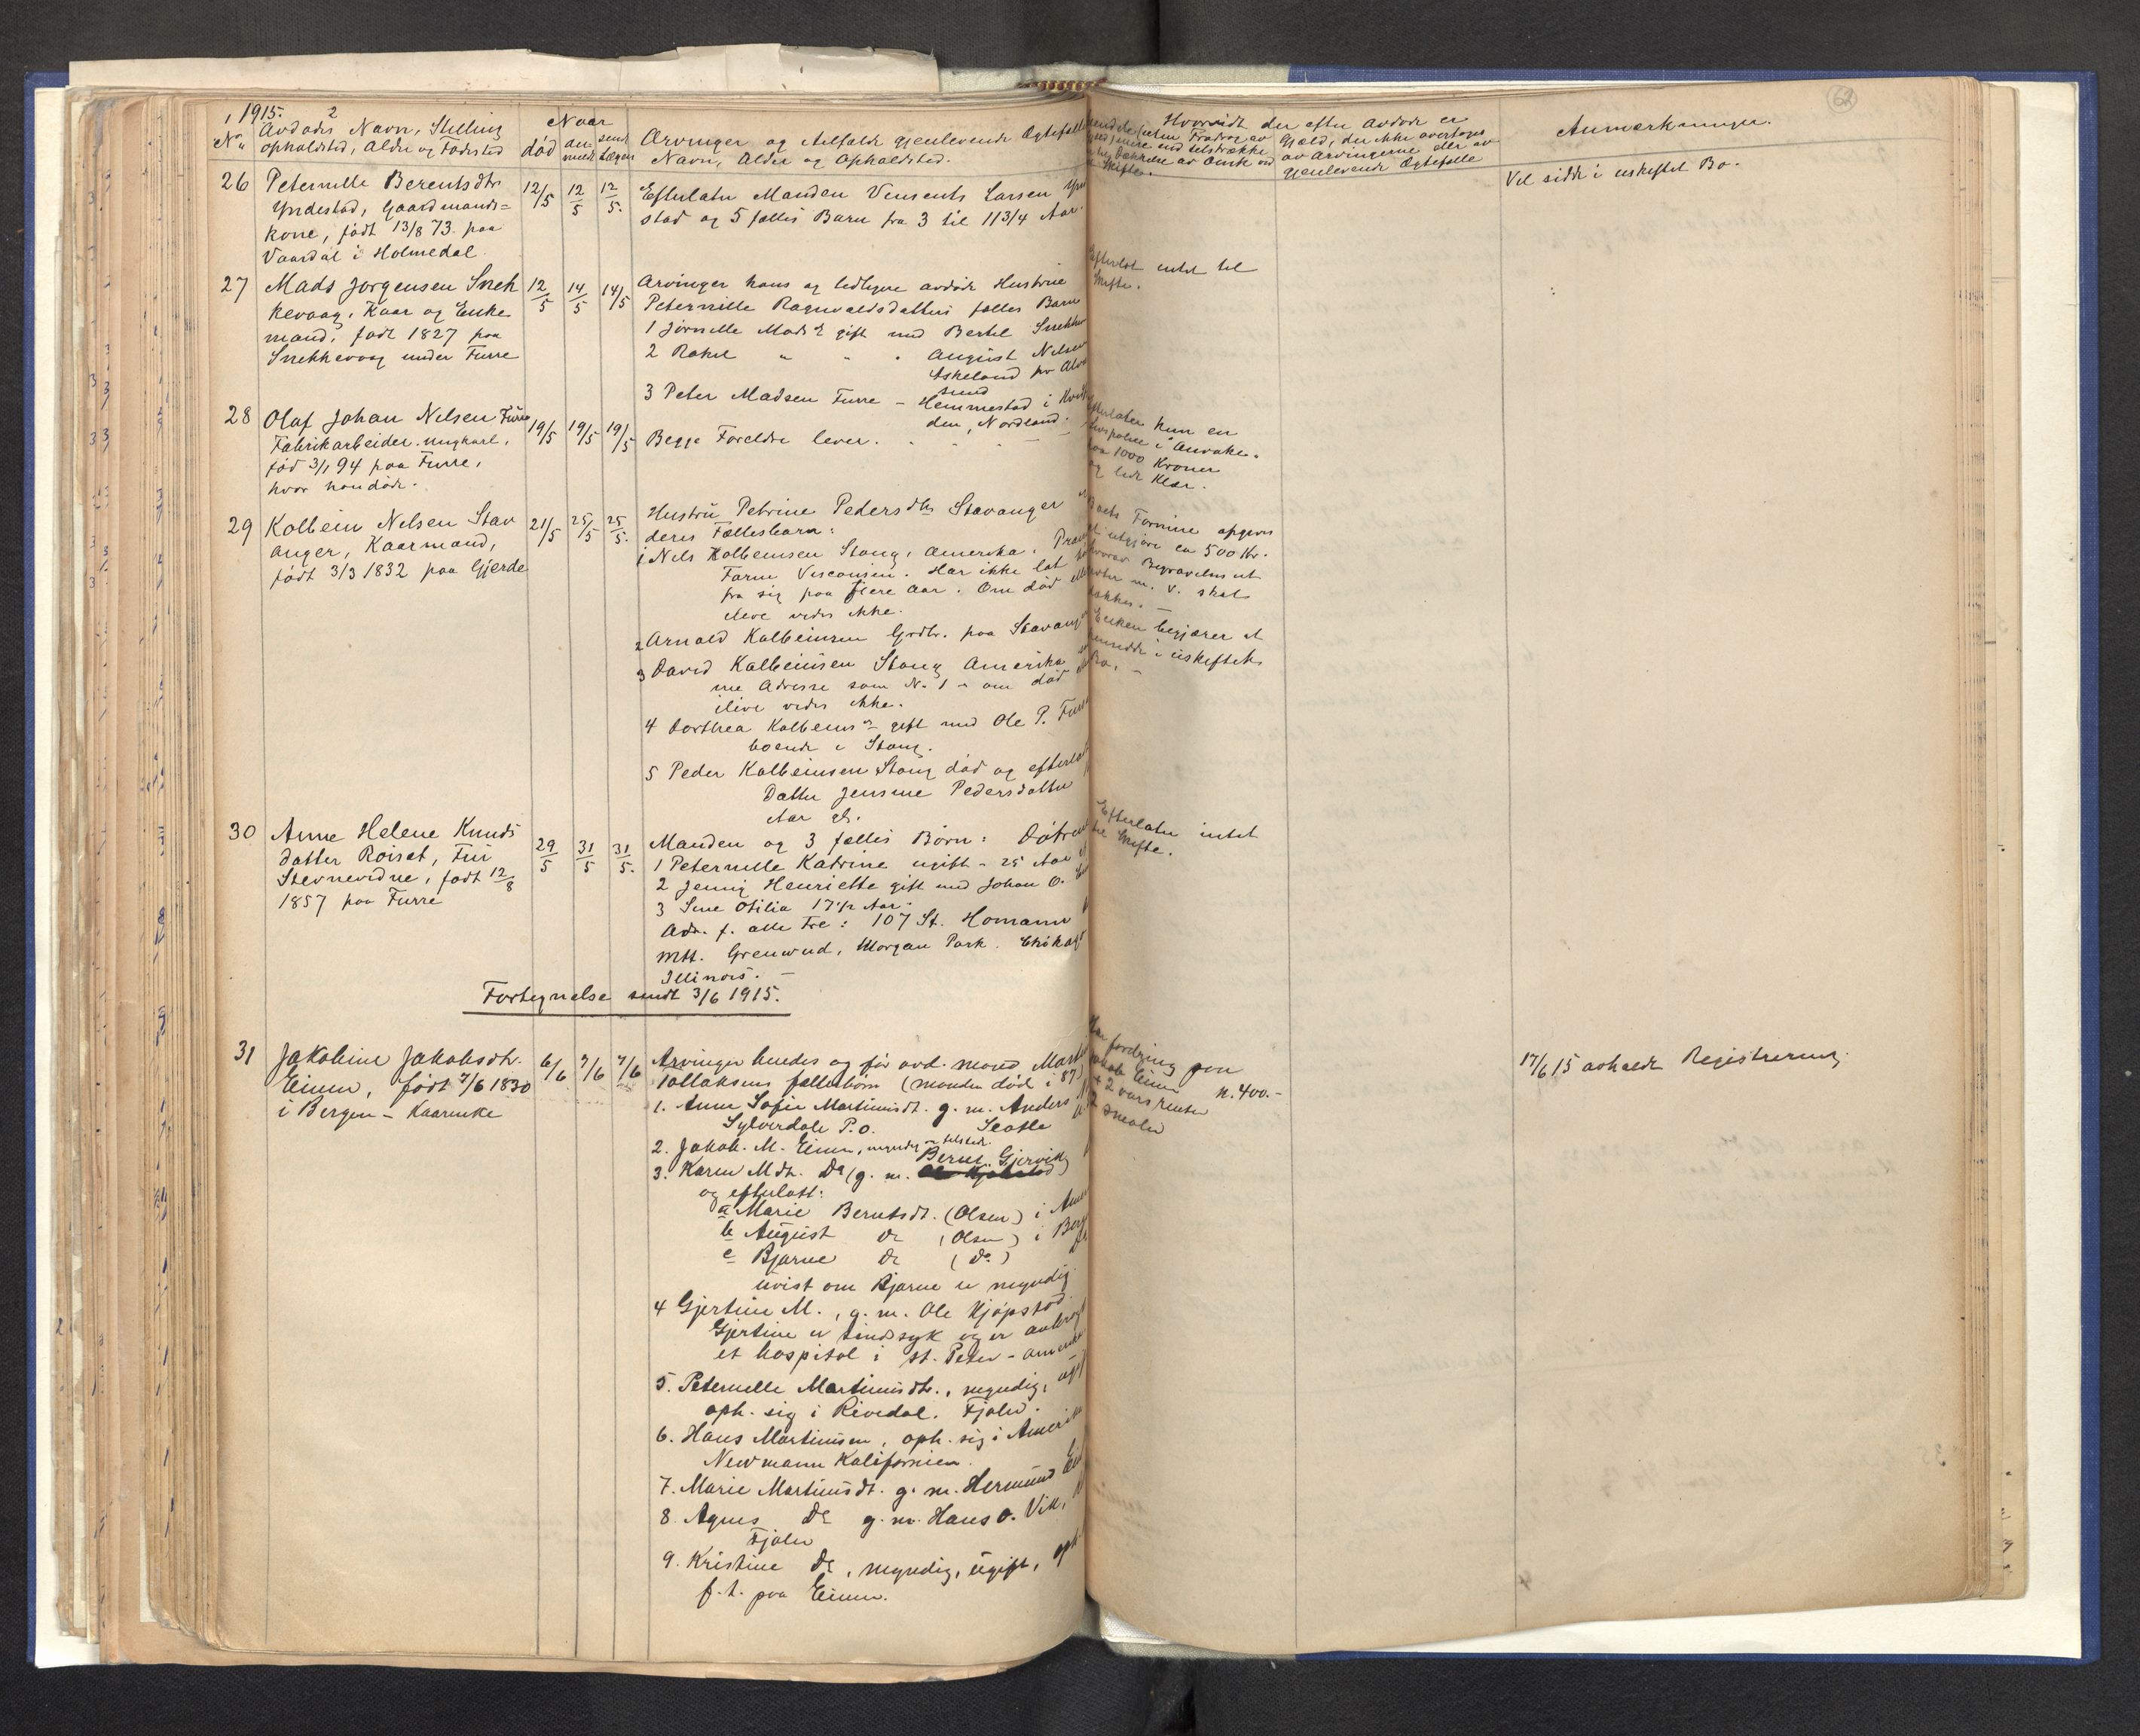 1915. 2
No
Avdødes Navn, Stilling
opholdsted, Alder og Fødested
Naar
død
an-
meldt
sendt
Arvinger og tilfælde gjenlevende Ægtefælle
Navn, Alder og Opholdsted.
Hvorvidt der efter avdøde er
Gjæld, der ikke overtages
av Arvingerne eller av
gjenlevende Ægtefælle
Anmerkninger.
62
26 Peternelle Berentsdtr
Yndestad, Gaardmands=
kone, født 13/8 73. paa
Vaardal i Holmedal.
12/5 12/5 12/5.
Efterlater Manden Vensents Larsen
stad og 5 fælles Barn fra 3 til 11 3/4 Aar.
Vil sidde i uskiftet Bo.
27 Mads Jørgensen Snek
kevaag, Kaar og Enke
mand, født 1827 paa
Snekkevaag under Furre
12/5 14/5 14/5
Arvinger hans og tidligere avdøde Hustrue
Peternille Ragnvaldsdatters fælles Barn
1 Jørnelle Madsd gift med Bertel
2 Rakel " " " August Nilsen
Askeland pr
sund
3 Peter Madsen Furre - Hemmestad i
den, Nordland.
Efterlot intet til
Skifte.
28 Olaf Johan Nilsen Furre
Fabrikarbeider. ungkarl,
fød 3/1 94 paa Furre,
hvor han døde.
19/5 19/5 19/5
Begge Foreldre lever.
Efterlater kun en
paa 1000 Kroner
og lidt Klær.
29 Kolbein Nilsen Stav
anger, Kaarmand,
født 3/3 1832 paa Gjerde
21/5 25/5 25/5.
Hustru Petrine Pedersdtr Stavanger
deres Fællesbarn:
1 Nils Kolbeinsen Stang, Amerika.
Farm, Visconsin. Har ikke lat
fra sig paa flere Aar. Om død
ileve vides ikke.
2 Arnold Kolbeinsen Grdbr. paa
3 David Kolbeinsen Stang Amerika
me Adresse som N. 1 - om død
ilive vides ikke.
4 Dorthea Kolbeins gift med Ole P.
boende i Stang.
5 Peder Kolbeinsen Stang død og
Datter Jensine Pedersdatter
Aar gl.
Boets Formue opgives
at utgjøre ca 500 Kr.
hvorav Begravelses ut
m. v. skal
Enken begjærer at
i uskiftet
Bo.
30 Anne Helene Knuds
datter Roiset, Fur
Stevnevidne, født 12/8
1857 paa Furre
29/5 31/5 31/5.
Manden og 3 fælles Børn: Døtre
1 Peternelle Katrine ugift - 25 Aar
2 Jenny Henriette gift med Johan O.
3 Sine Otilia 17 1/2 Aar.
Adr. f. alle Tre: 107 St. Homann
Mtt. Grenwud, Morgan Park.
Illinois. -
Efterlater intet
til Skifte.
Fortegnelse sendt 3/6 1915.
31 Jakobine Jakobsdtr.
Eimen, født 7/6 1830
i Bergen - Kaarenke
6/6 7/6 7/6
Arvinger hendes og før avd. mand
Tollaksens fællesbørn (manden død i 87)
1. Anne Sofie Martinusdt. g. m. Anders
Sylverdale P.O. Seatle
2. Jakob. M. Eimen, myndig
3. Karen Mdt. Dø (g. m. Bernt Gjervik)
og efterlatt:
a Marie Berntsdt. (Olsen) i
b August do (Olsen) i
c Bjarne do (do)
uvist om Bjarne er myndig
4 Gjertine M., g. m. Ole Kjøpstad
Gjertine er sindssyk og er
et hospital i St. Peter -
5. Peternelle Martinusdtr., myndig,
oph. sig i Rivedal. Fjaler.
6. Hans Martinusen, oph. sig i Amerika
Newmann Kalifornien.
7. Marie Martinusdt. g. m. Hermund
8. Agnes do g. m. Hans O. Vik,
Fjaler
9. Kristine do, myndig, ugift,
f. t. paa Eimen.
fordring paa
Eimen
kr. 400.-
+ 2 aars renter
17/6 15 avholdt Registrering.